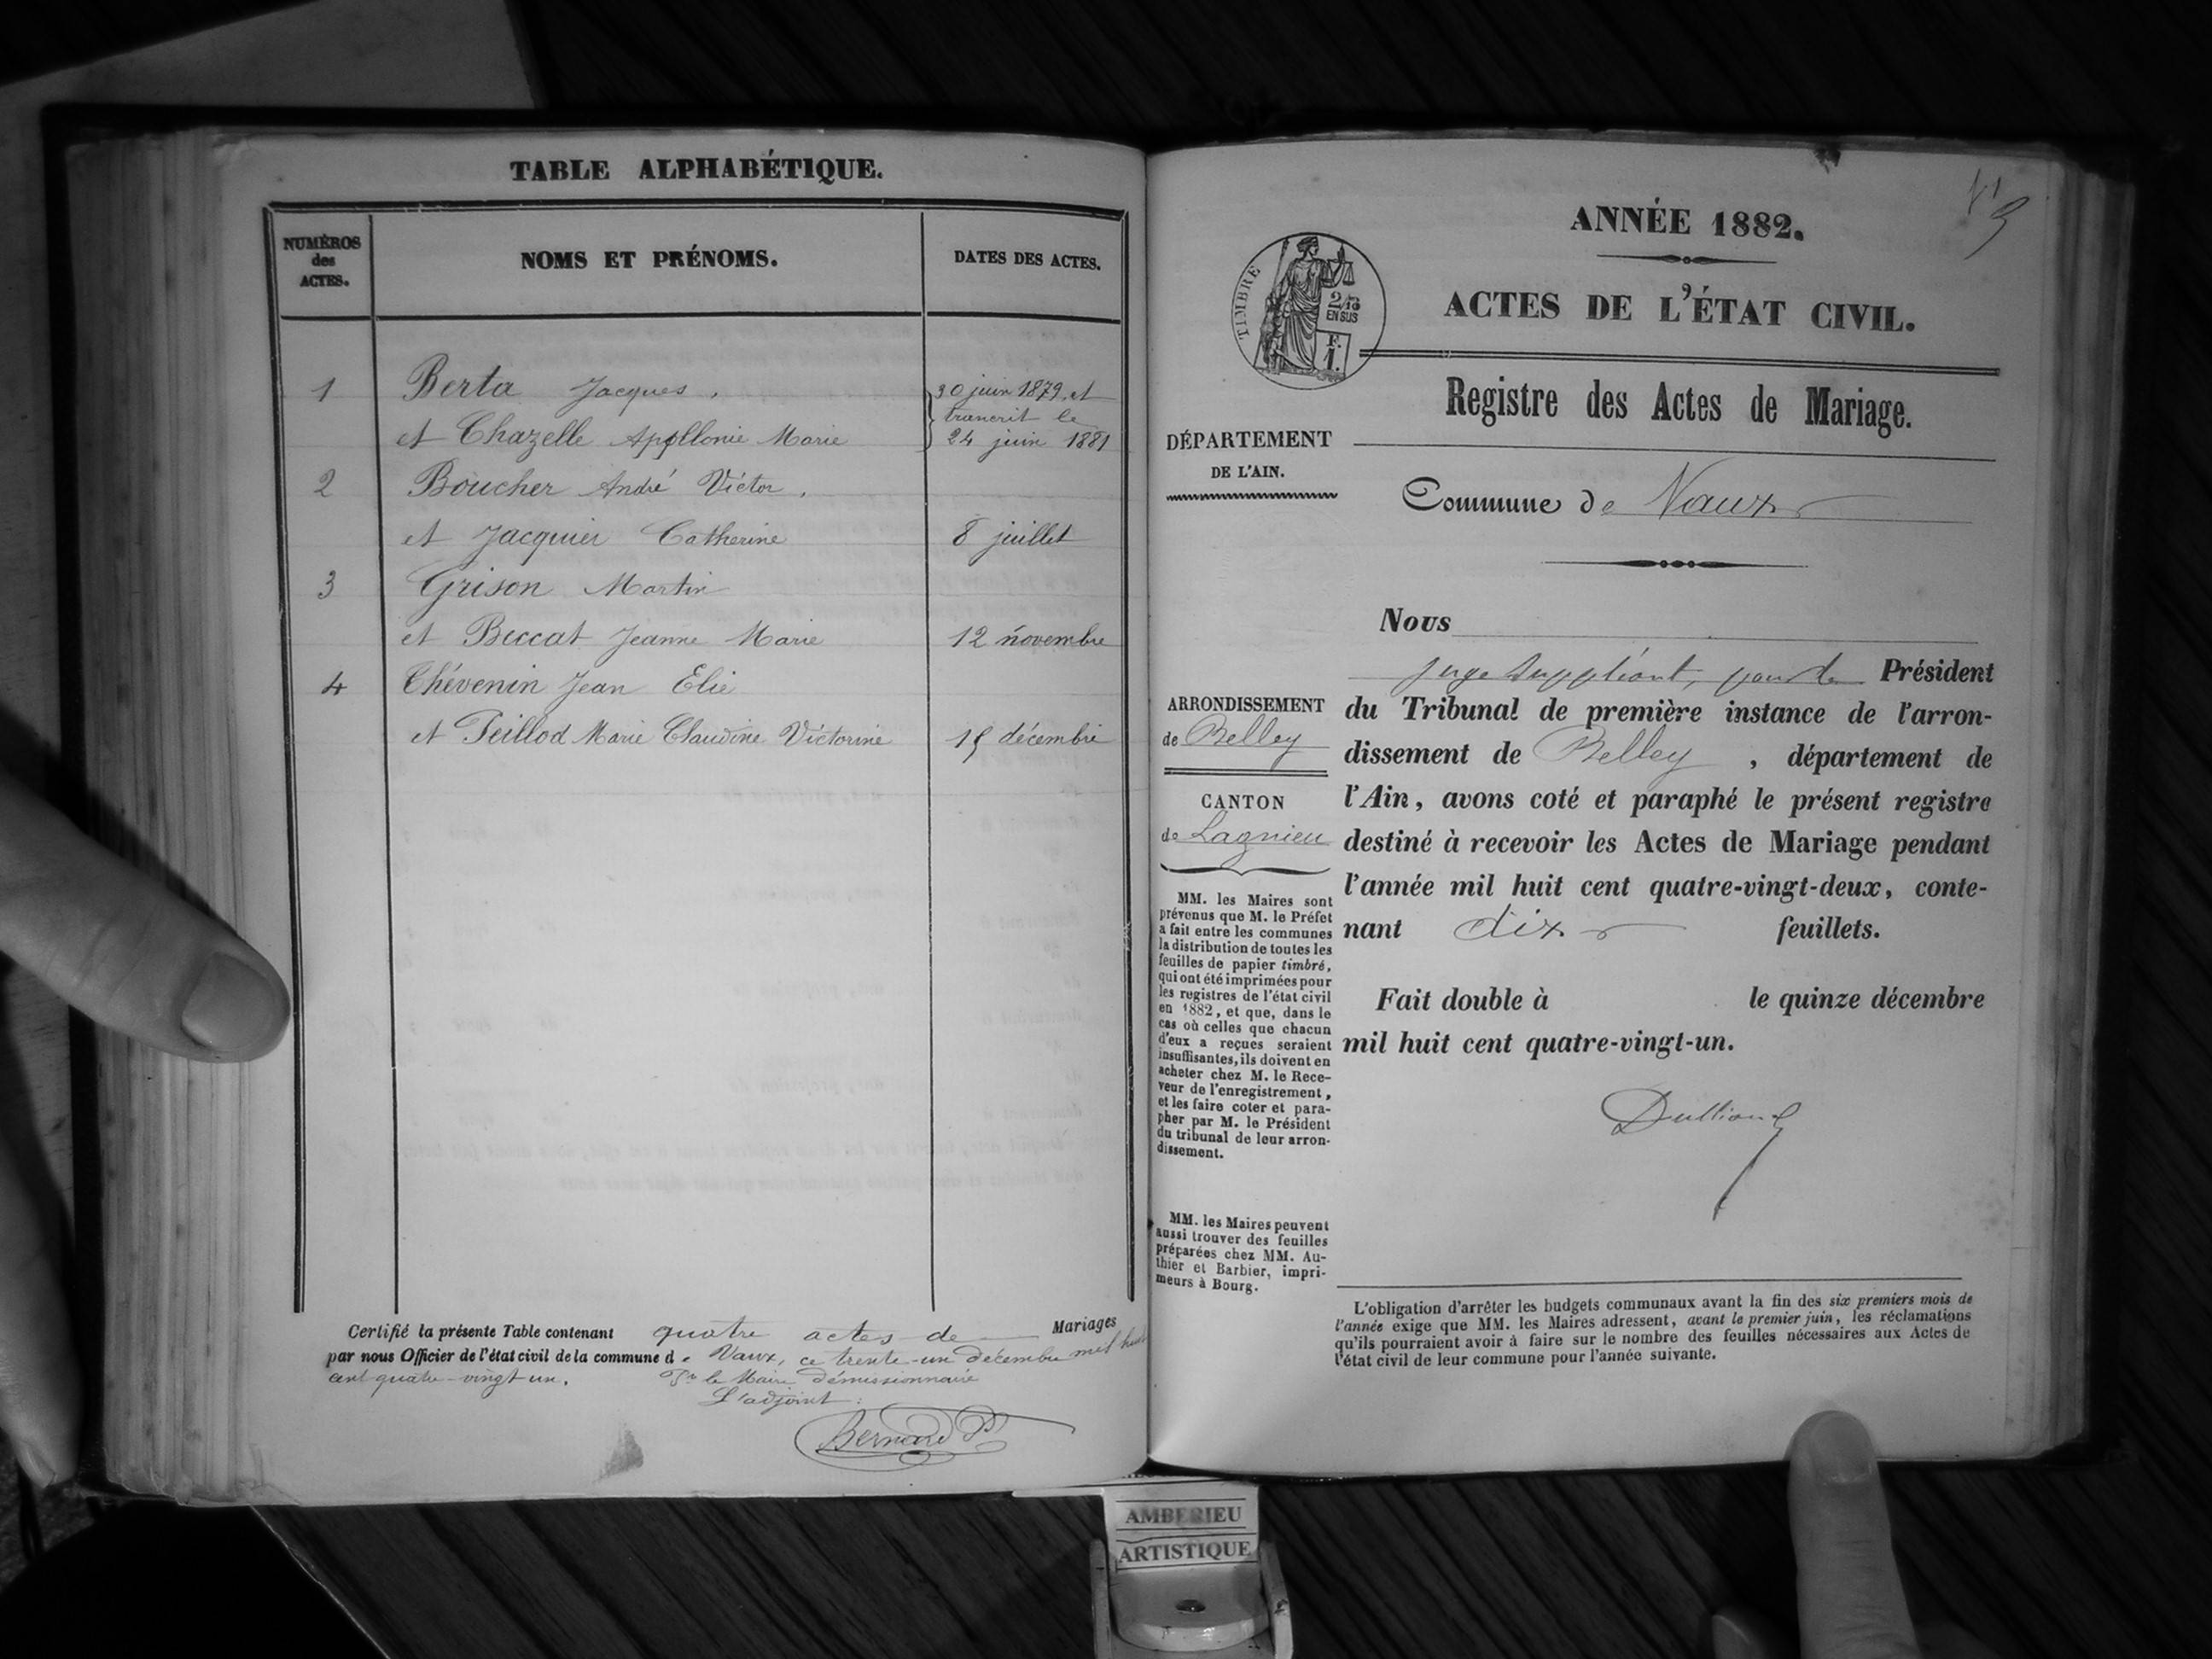 TABLE ALPHABÉTIQUE.
NUMÉROS
des
ACTES.
NOMS ET PRÉNOMS.
DATES DES ACTES.
1 Berta Jacques, 30 juin 1879, et
trancrit le
et Chazelle Apollonie Marie 24 juin 1881
2 Boucher André Victor,
et Jacquier Catherine 8 juillet
3 Grison Martin
et Beccat Jeanne Marie 12 novembre
4 Thévenin Jean Elie
et Peillod Marie Claudine Victorine 15 décembre
Certifié la présente Table contenant quatre actes de Mariages
par nous Officier de l'état civil de la commune de Vaux, ce trente-un décembre mil huit
cent quatre-vingt un. Pr le Maire démissionnaire
L'adjoint:
Bernard
ANNÉE 1882.
TIMBRE
2/10
EN SUS
F.
1.
ACTES DE L'ÉTAT CIVIL.
Registre des Actes de Mariage.
DÉPARTEMENT
DE L'AIN.
Commune de Vaux
Nous
juge suppléant, pour le Président
du Tribunal de première instance de l'arron-
dissement de Belley, département de
l'Ain, avons coté et paraphé le présent registre
destiné à recevoir les Actes de Mariage pendant
l'année mil huit cent quatre-vingt-deux, conte-
nant dix feuillets.
Fait double à le quinze décembre
mil huit cent quatre-vingt-un.
ARRONDISSEMENT
de Belley
CANTON
de Lagnieu
MM. les Maires sont
prévenus que M. le Préfet
a fait entre les communes
la distribution de toutes les
feuilles de papier timbré,
qui ont été imprimées pour
les registres de l'état civil
en 1882, et que, dans le
cas où celles que chacun
d'eux a reçues seraient
insuffisantes, ils doivent en
acheter chez M. le Rece-
veur de l'enregistrement,
et les faire coter et para-
pher par M. le Président
du tribunal de leur arron-
dissement.
MM. les Maires peuvent
aussi trouver des feuilles
préparées chez MM. Au-
thier et Barbier, impri-
meurs à Bourg.
L'obligation d'arrêter les budgets communaux avant la fin des six premiers mois de
l'année exige que MM. les Maires adressent, avant le premier juin, les réclamations
qu'ils pourraient avoir à faire sur le nombre des feuilles nécessaires aux Actes de
l'état civil de leur commune pour l'année suivante.
AMBERIEU
ARTISTIQUE